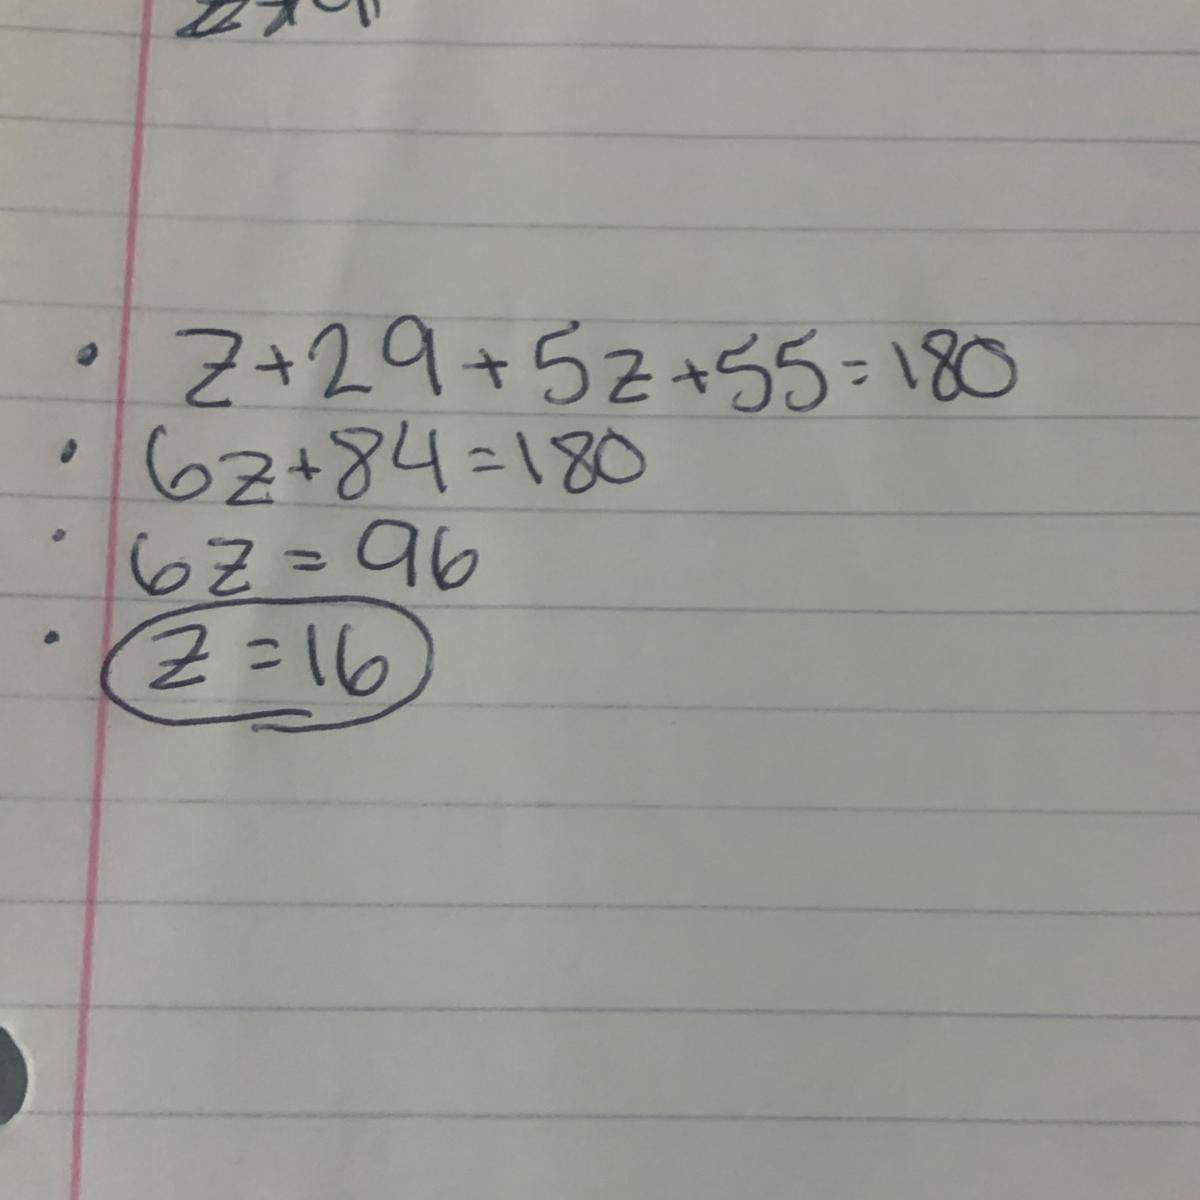 • z+29+5z+55=180
• 6z+84=180
• 6z=96
• z=16